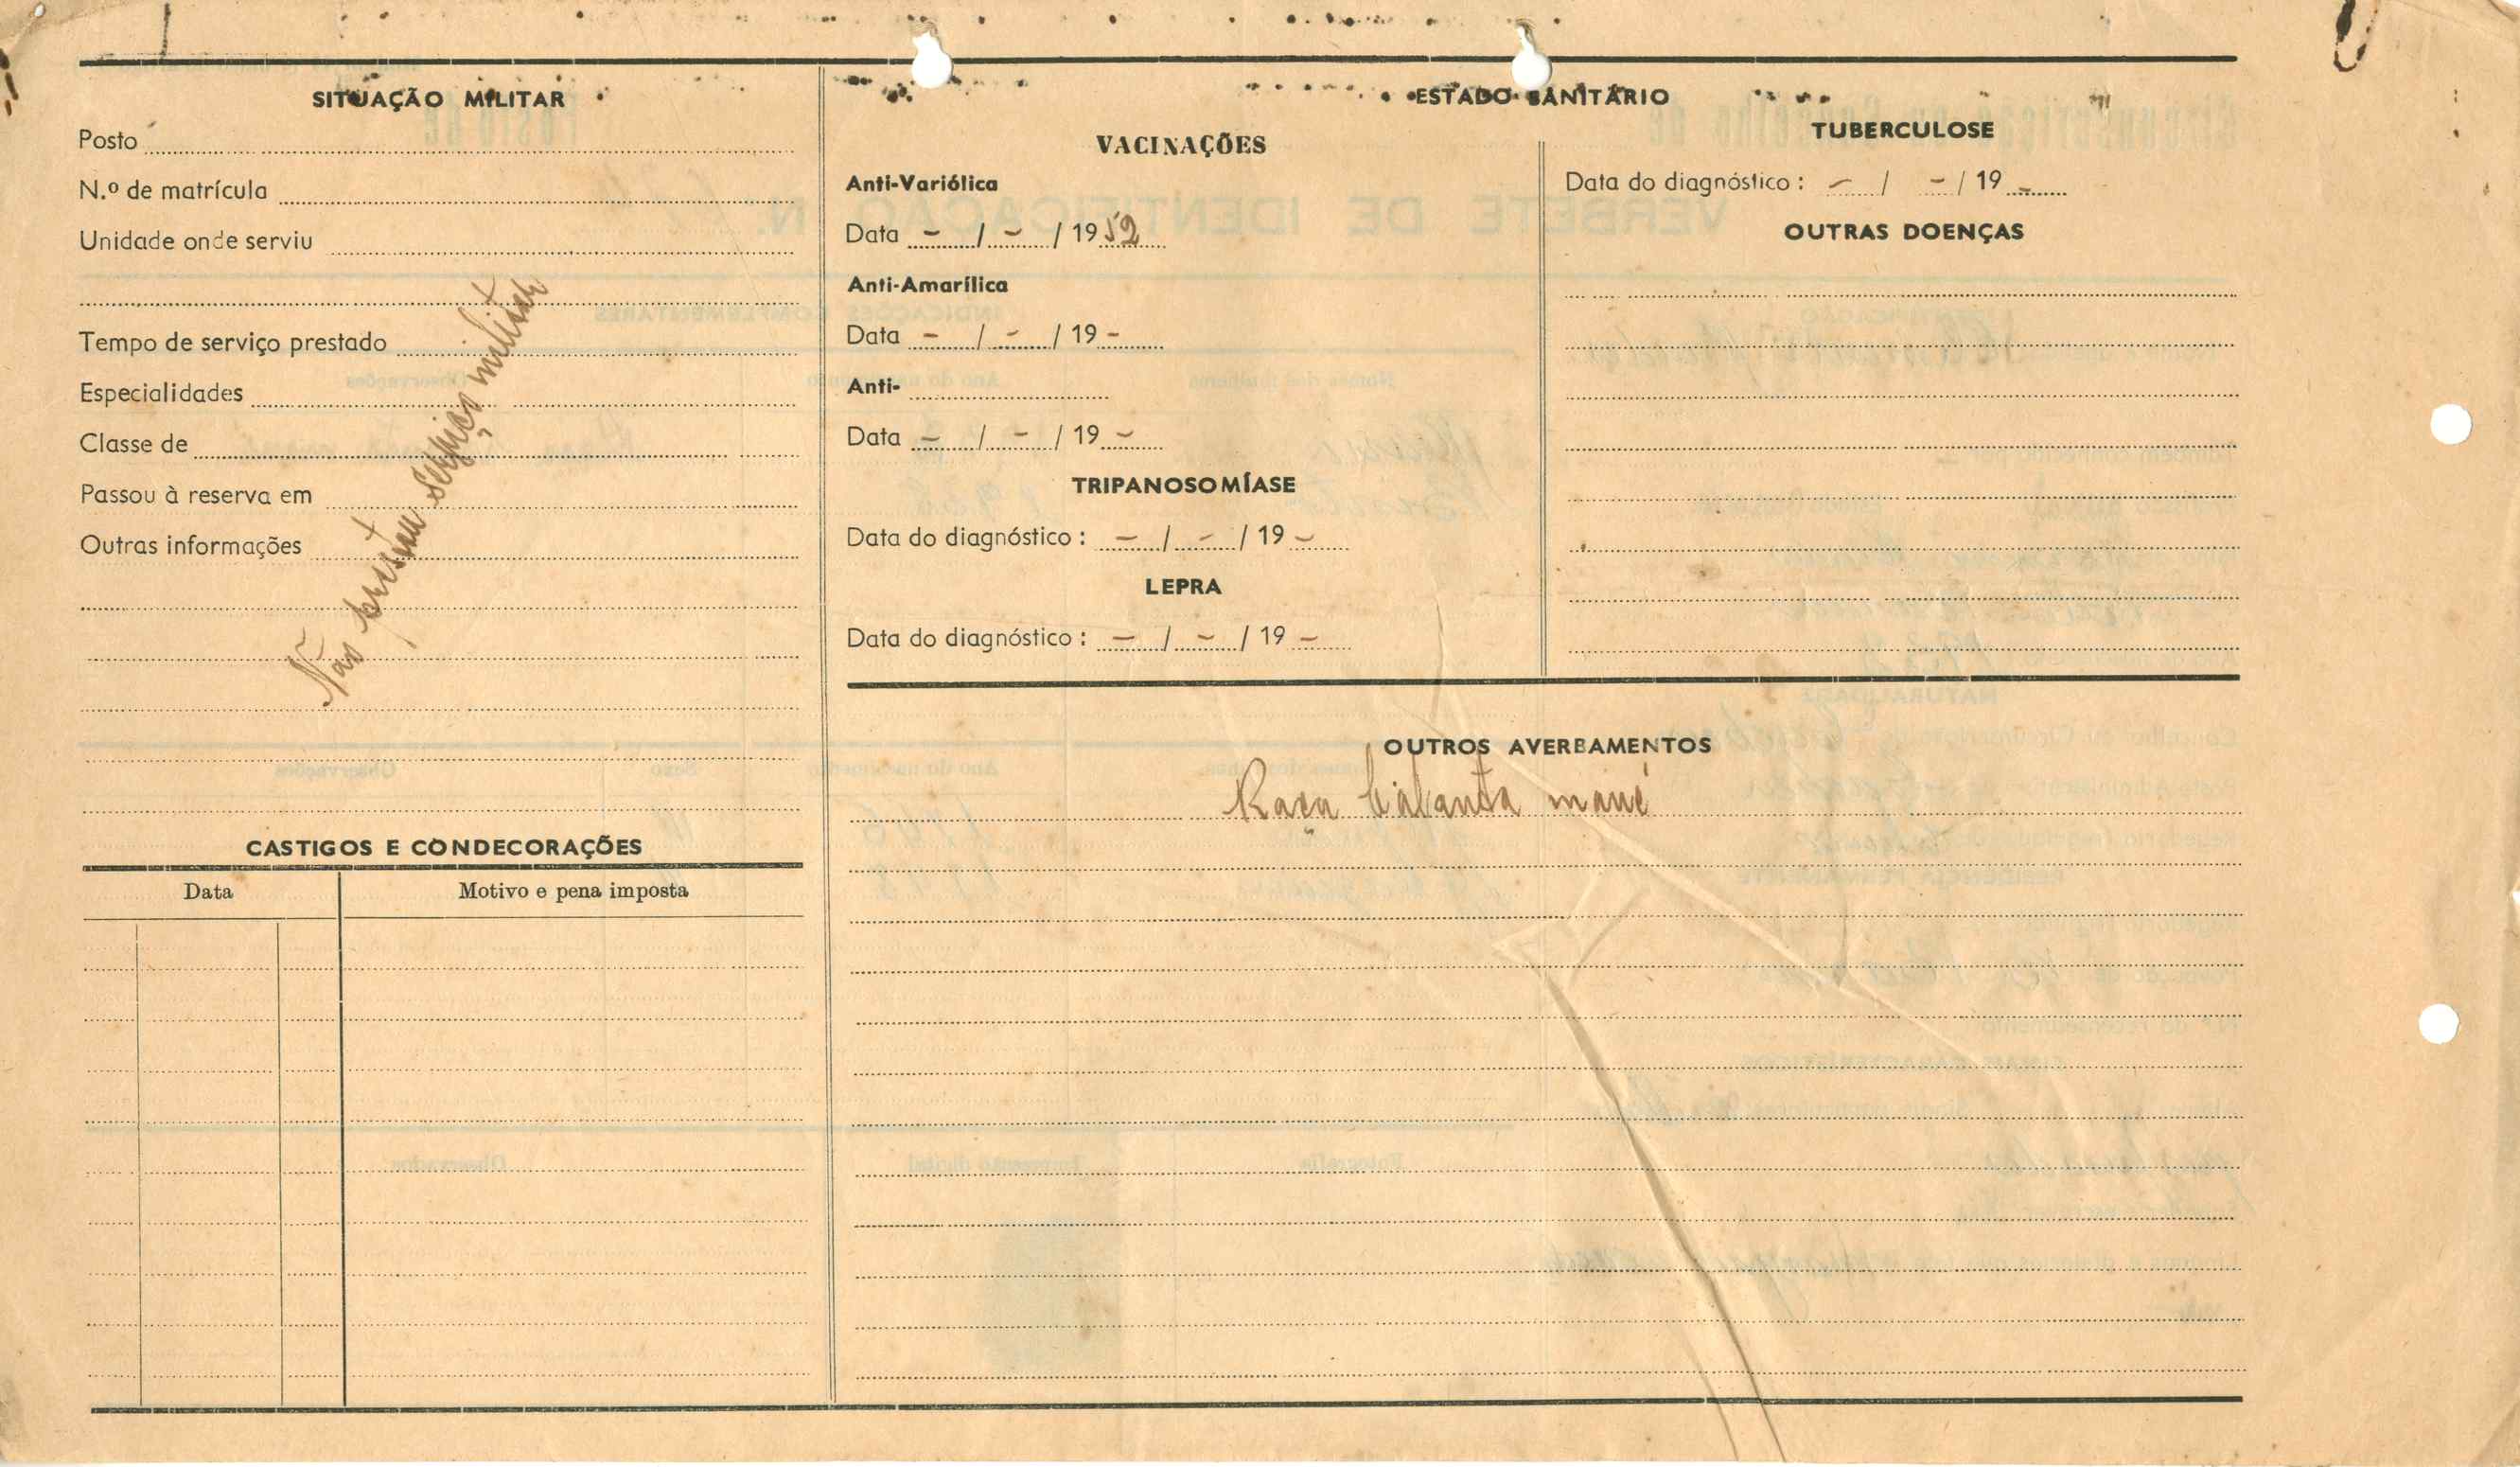 SITUAÇÃO MILITAR
Posto
N.º de matrícula
Unidade onde serviu
Tempo de serviço prestado
Especialidades
Classe de
Passou à reserva em
Outras informações
Não prestou serviço militar
CASTIGOS E CONDECORAÇÕES
Data Motivo e pena imposta
ESTADO SANITÁRIO
VACINAÇÕES
Anti-Variólica
Data - / - / 1952
Anti-Amarílica
Data - / - / 19 -
Anti-
Data - / - / 19 -
TRIPANOSOMÍASE
Data do diagnóstico : - / - / 19 -
LEPRA
Data do diagnóstico : - / - / 19 -
TUBERCULOSE
Data do diagnóstico : - / - / 19 -
OUTRAS DOENÇAS
OUTROS AVERBAMENTOS
Raça balanta mané